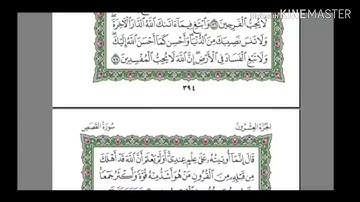 Made With
KINEMASTER
لَا يُحِبُّ ٱلْفَرِحِينَ ۝٧٦ وَٱبْتَغِ فِيمَآ ءَاتَىٰكَ ٱللَّهُ ٱلدَّارَ ٱلْأَخِرَةَ
وَلَا تَنسَ نَصِيبَكَ مِنَ ٱلدُّنْيَا وَأَحْسِن كَمَآ أَحْسَنَ ٱللَّهُ إِلَيْكَ
وَلَا تَبْغِ ٱلْفَسَادَ فِي ٱلْأَرْضِ إِنَّ ٱللَّهَ لَا يُحِبُّ ٱلْمُفْسِدِينَ ۝٧٧
٣٩٤
الجُزءُ العِشْرُونَ سُورَةُ القَصَصِ
قَالَ إِنَّمَآ أُوتِيتُهُۥ عَلَىٰ عِلْمٍ عِندِيٓ أَوَلَمْ يَعْلَمْ أَنَّ ٱللَّهَ قَدْ أَهْلَكَ
مِن قَبْلِهِۦ مِنَ ٱلْقُرُونِ مَنْ هُوَ أَشَدُّ مِنْهُ قُوَّةً وَأَكْثَرُ جَمْعًا